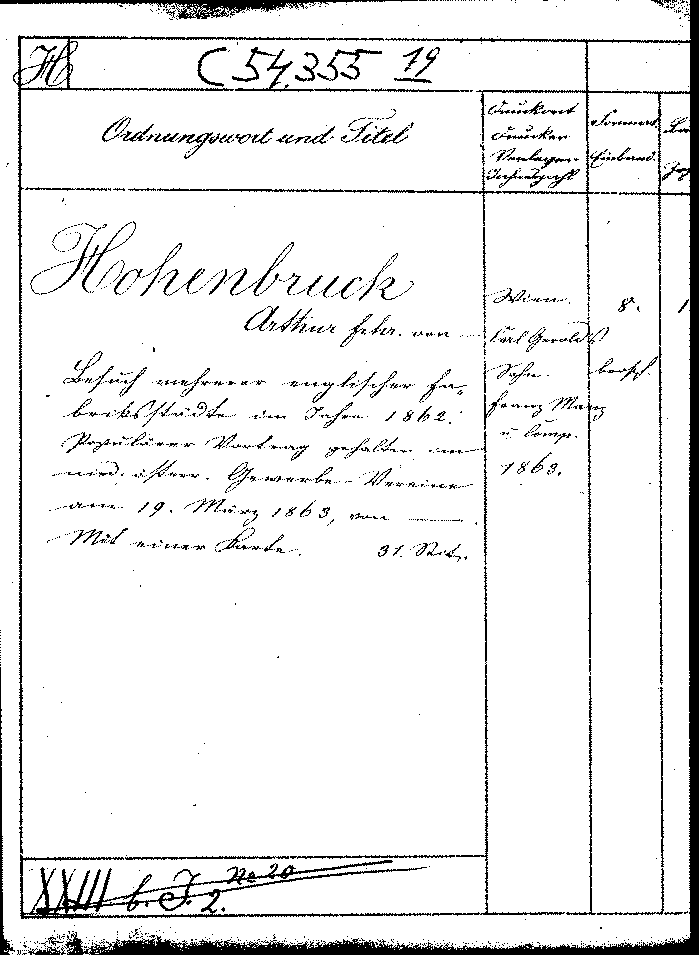 H
C 54.355 19
Ordnungswort und Titel
Druckort
Drucker
Verleger
Format.
Einband.
Hohenbruck
Arthur Frhr. von —
Besuch mehrerer englischer Fa-
briksstädte im Jahre 1862.
Populärer Vortrag gehalten im
nied. österr. Gewerbe-Vereine
am 19. März 1863, von —.
Mit einer Karte. 31. Seit.
Wien.
Karl Gerold's
Sohn.
Franz Manz
u Comp.
1863.
8.
brosch.
1
XXIII b. J. 2. No 20